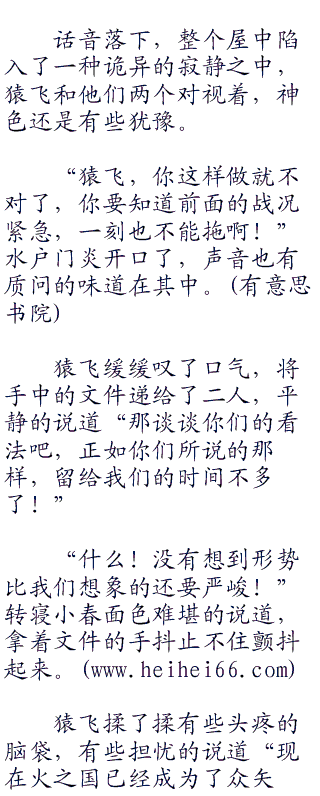 话音落下，整个屋中陷
入了一种诡异的寂静之中，
猿飞和他们两个对视着，神
色还是有些犹豫。
“猿飞，你这样做就不
对了，你要知道前面的战况
紧急，一刻也不能拖啊！”
水户门炎开口了，声音也有
质问的味道在其中。(有意思
书院)
猿飞缓缓叹了口气，将
手中的文件递给了二人，平
静的说道“那谈谈你们的看
法吧，正如你们所说的那
样，留给我们的时间不多
了！”
“什么！没有想到形势
比我们想象的还要严峻！”
转寝小春面色难堪的说道，
拿着文件的手抖止不住颤抖
起来。(www.heihei66.com)
猿飞揉了揉有些头疼的
脑袋，有些担忧的说道“现
在火之国已经成为了众矢